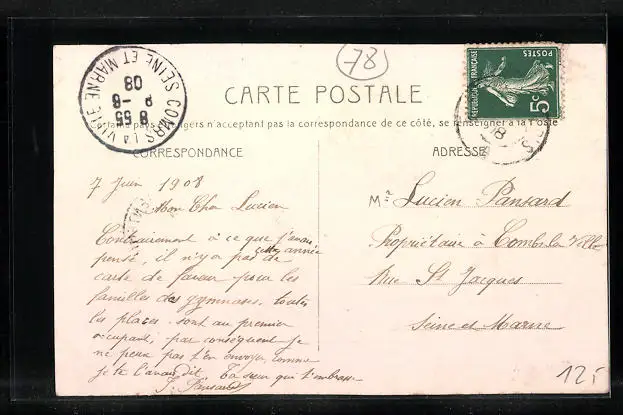 78
COMBS LA VILLE
SEINE ET MARNE
8 55
8 - 6
08
CARTE POSTALE
pays étrangers n'acceptant pas la correspondance de ce côté, se renseigner à la Poste
CORRESPONDANCE
ADRESSE
REPUBLIQUE FRANÇAISE
POSTES
5c
7 Juin 1908
Mon Cher Lucien
Contrairement à ce que j'avais
pensé, il n'y a pas de cette année
carte de faveur pour les
familles des gymnases, toutes
les places sont au premier
occupant, par conséquent je
ne peux pas t'en envoyer comme
je te l'avais dit. Ta sœur qui t'embrasse
J. Pansard
Mr Lucien Pansard
Propriétaire à Combs la Ville
Rue St Jacques
Seine et Marne
12,-